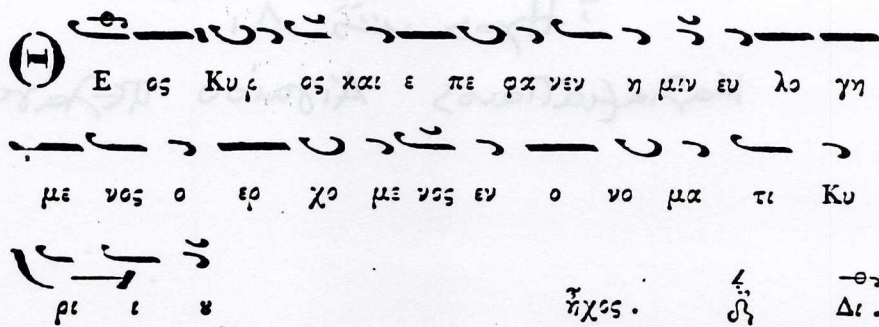 Θ Ε ος Κυρ ος και ε πε φα νεν η μιν ευ λο γη
με νος ο ερ χο με νος εν ο νο μα τι Κυ
ρι ι ȣ ἦχος . Δι .